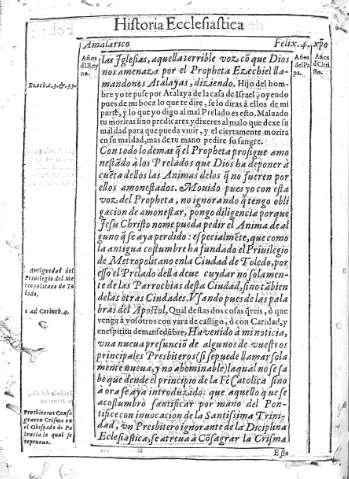 Historia Ecclesiastica
Amalarico
Felix. 4.
Xpo
Años
del Rey
Años
del Pa
pa.
Años
de Chris
to.
las Iglesias, aquella terrible voz cō que Dios
nos amenaza por el Propheta Ezechiel lla-
mandones Atalayas, diziendo. Hijo del hom
bre yo te puse por Atalaya de la casa de Israel, oyendo
pues de mi boca lo que te dire, se lo diras à ellos de mi
parte, y lo que yo digo al mal Prelado es esto, Maluado
tu moriras sino predicares, y dixeres al malo que dexe su
maldad para que pueda viuir, y el ciertamente morira
en su maldad, mas de tu mano pedire su sangre.
Con todo lo demas q̃ el Propheta prosigue amo
nestādo à los Prelados que Dios ha de poner à
cuēta dellos las Animas delos q̃ no fueren por
ellos amonestados. Mouido pues yo con esta
voz del Propheta, no ignorando q̃ tengo obli
gacion de amonestar, pongo diligencia porque
Iesu Christo no me pueda pedir el Anima de al
guno q̃ se aya perdido: especialmēte, que como
la antigua costumbre ha fundado el Priuilegio
de Metropolitano en la Ciudad de Toledo, por
esso el Prelado della deue cuydar no solamen-
te de las Parrochias desta Ciudad, sino tābien
de las otras Ciudades. Vsando pues de las pala
bras del Apostol, Qual destas dos cosas q̃reis, ò que
venga à vosotros con vara de castigo, ò con Caridad, y
en espiritu de mansedūbre. Ha venido à mi noticia,
vna nueua presunciō de algunos de vuestros
principales Presbiteros (si se puede llamar sola
mente nueua, y no abominable) la qual no se sa
bo que dende el principio de la Fè Catolica sino
à ora se aya introduzido: que aquello que se
acostumbrò santificar por mano del Pon-
tifice con inuocacion de la Santissima Trini-
dad, vn Presbitero ignorante de la Diciplina
Ecclesiastica, se atreua à Cōsagrar la Crisma
Esto
Antiguedad del
Priuilegio del Me
tropolitano de To
ledo,
1 ad Corinth. 4.
Presbiteros Consa
grauan Crisma en
el Obispado de Pa
lencia lo qual se
reprueua.